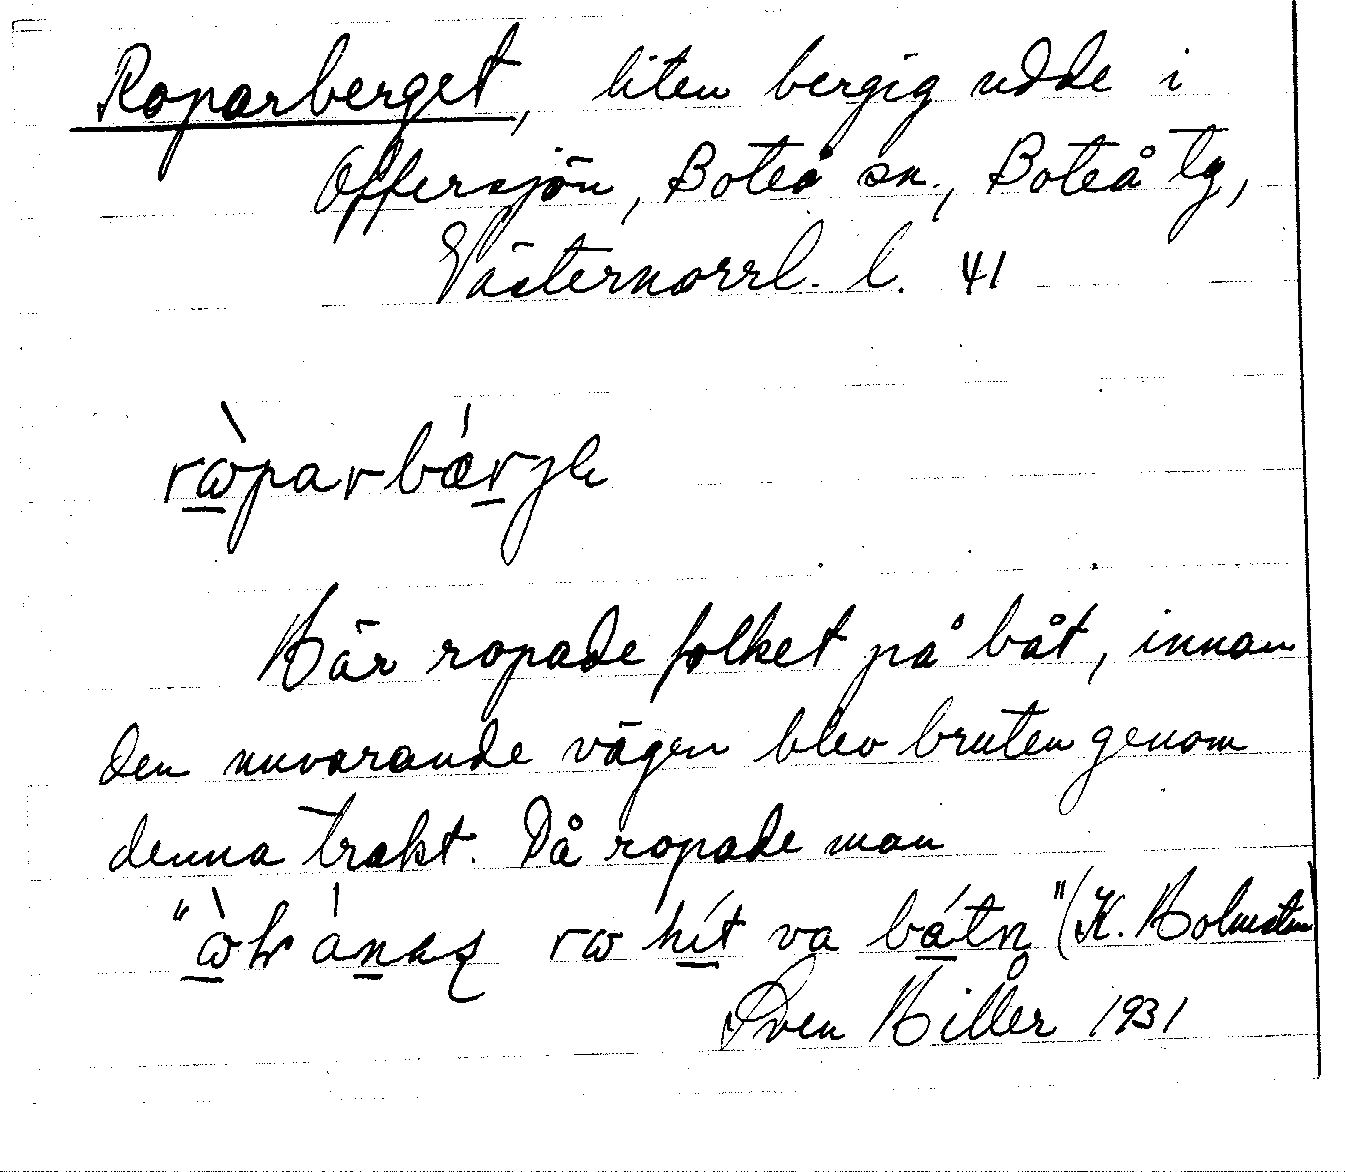 Roparberget, liten bergig udde i
Offersjön, Boteå sn., Boteå tg,
Västernorrl. l. 41
rɷ̀parbǽrgɛ
Här ropade folket på båt, innan
den nuvarande vägen blev bruten genom
denna trakt. Då ropade man
rɷ hít va bátn" (K. Holmsten
Sven Hillér 1931